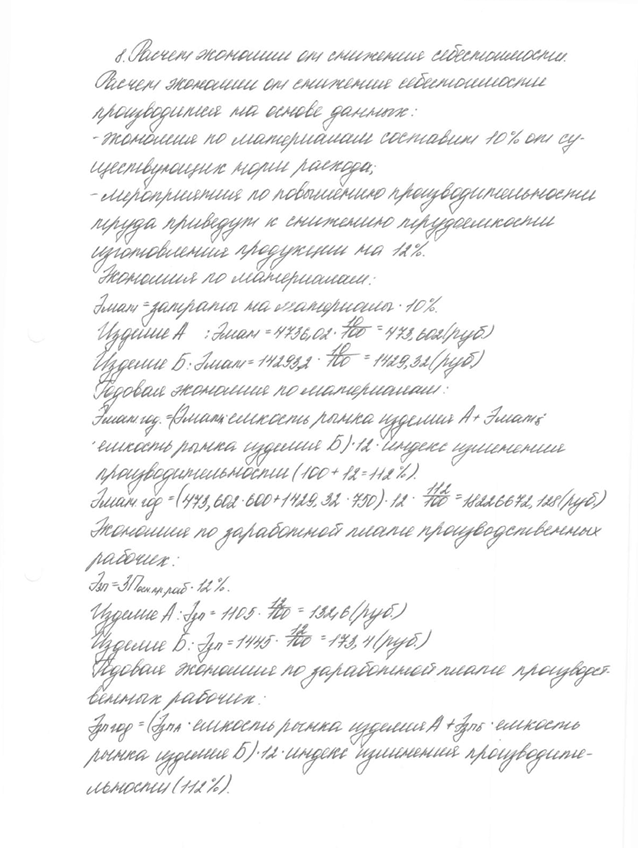 8. Расчет экономии от снижения себестоимости.
Расчет экономии от снижения себестоимости
производится на основе данных:
- экономия по материалам составит 10% от су-
ществующих норм расхода;
- мероприятия по повышению производительности
труда приведут к снижению трудоемкости
изготовления продукции на 12%.
Экономия по материалам:
Эмат = затраты на материалы · 10%.
Изделие А : Эмат = 4736,02 · 10/100 = 473,602 (руб)
Изделие Б: Эмат = 14293,2 · 10/100 = 1429,32 (руб)
Годовая экономия по материалам:
Эмат.год. = (Эмата · емкость рынка изделия А + Эматб ·
· емкость рынка изделия Б) · 12 · индекс изменения
производительности (100 + 12 = 112%).
Эмат.год = (473,602 · 600 + 1429,32 · 750) · 12 · 112/100 = 18226672,128 (руб)
Экономия по заработной плате производственных
рабочих:
Эзп = ЗПосн.пр.раб · 12%.
Изделие А: Эзп = 1105 · 12/100 = 132,6 (руб.)
Изделие Б: Эзп = 1445 · 12/100 = 173,4 (руб.)
Годовая экономия по заработной плате производст-
венных рабочих:
Эзп год = (Эзпа · емкость рынка изделия А + Эзпб · емкость
рынка изделия Б) · 12 · индекс изменения производите-
льности (112%).